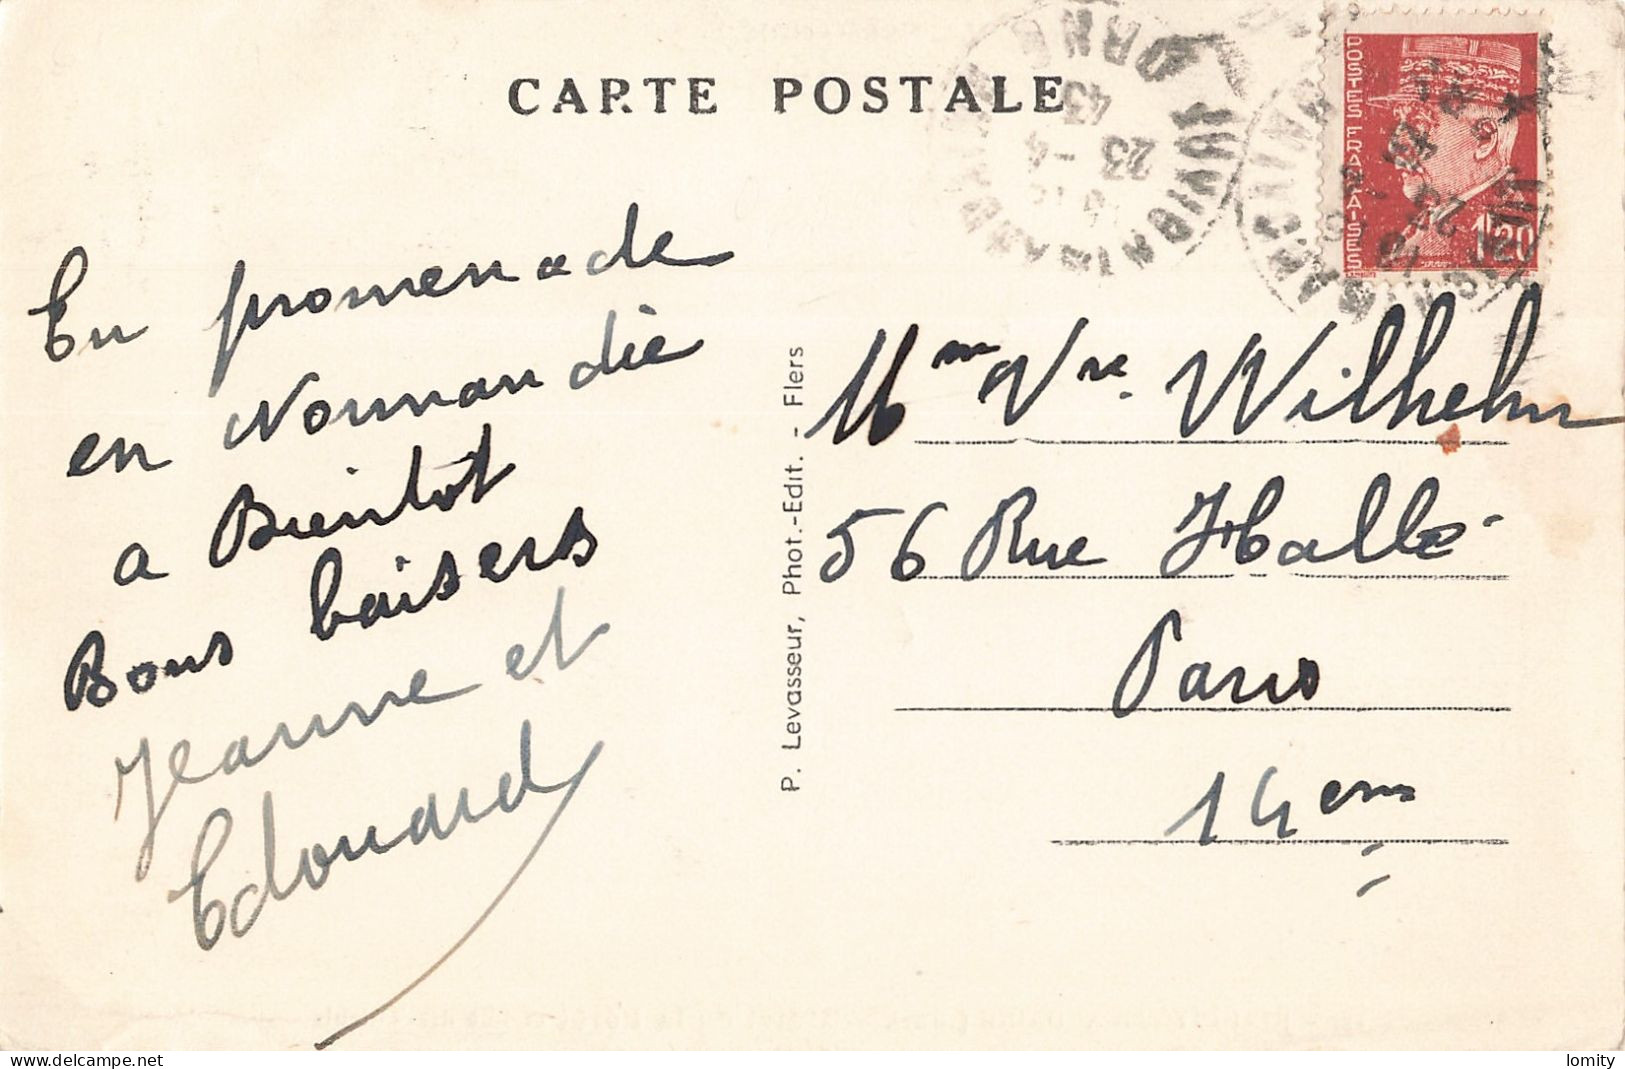 CARTE POSTALE
POSTES FRANÇAISES
1,20
ORNE
23 -4
43
En promenade
en Normandie
a Bientot
Bons baisers
Jeanne et
Edouard
P. Levasseur, Phot.-Edit. - Flers
Mme Vve. Wilhelm
56 Rue Hallé
Paris
14em
lomity